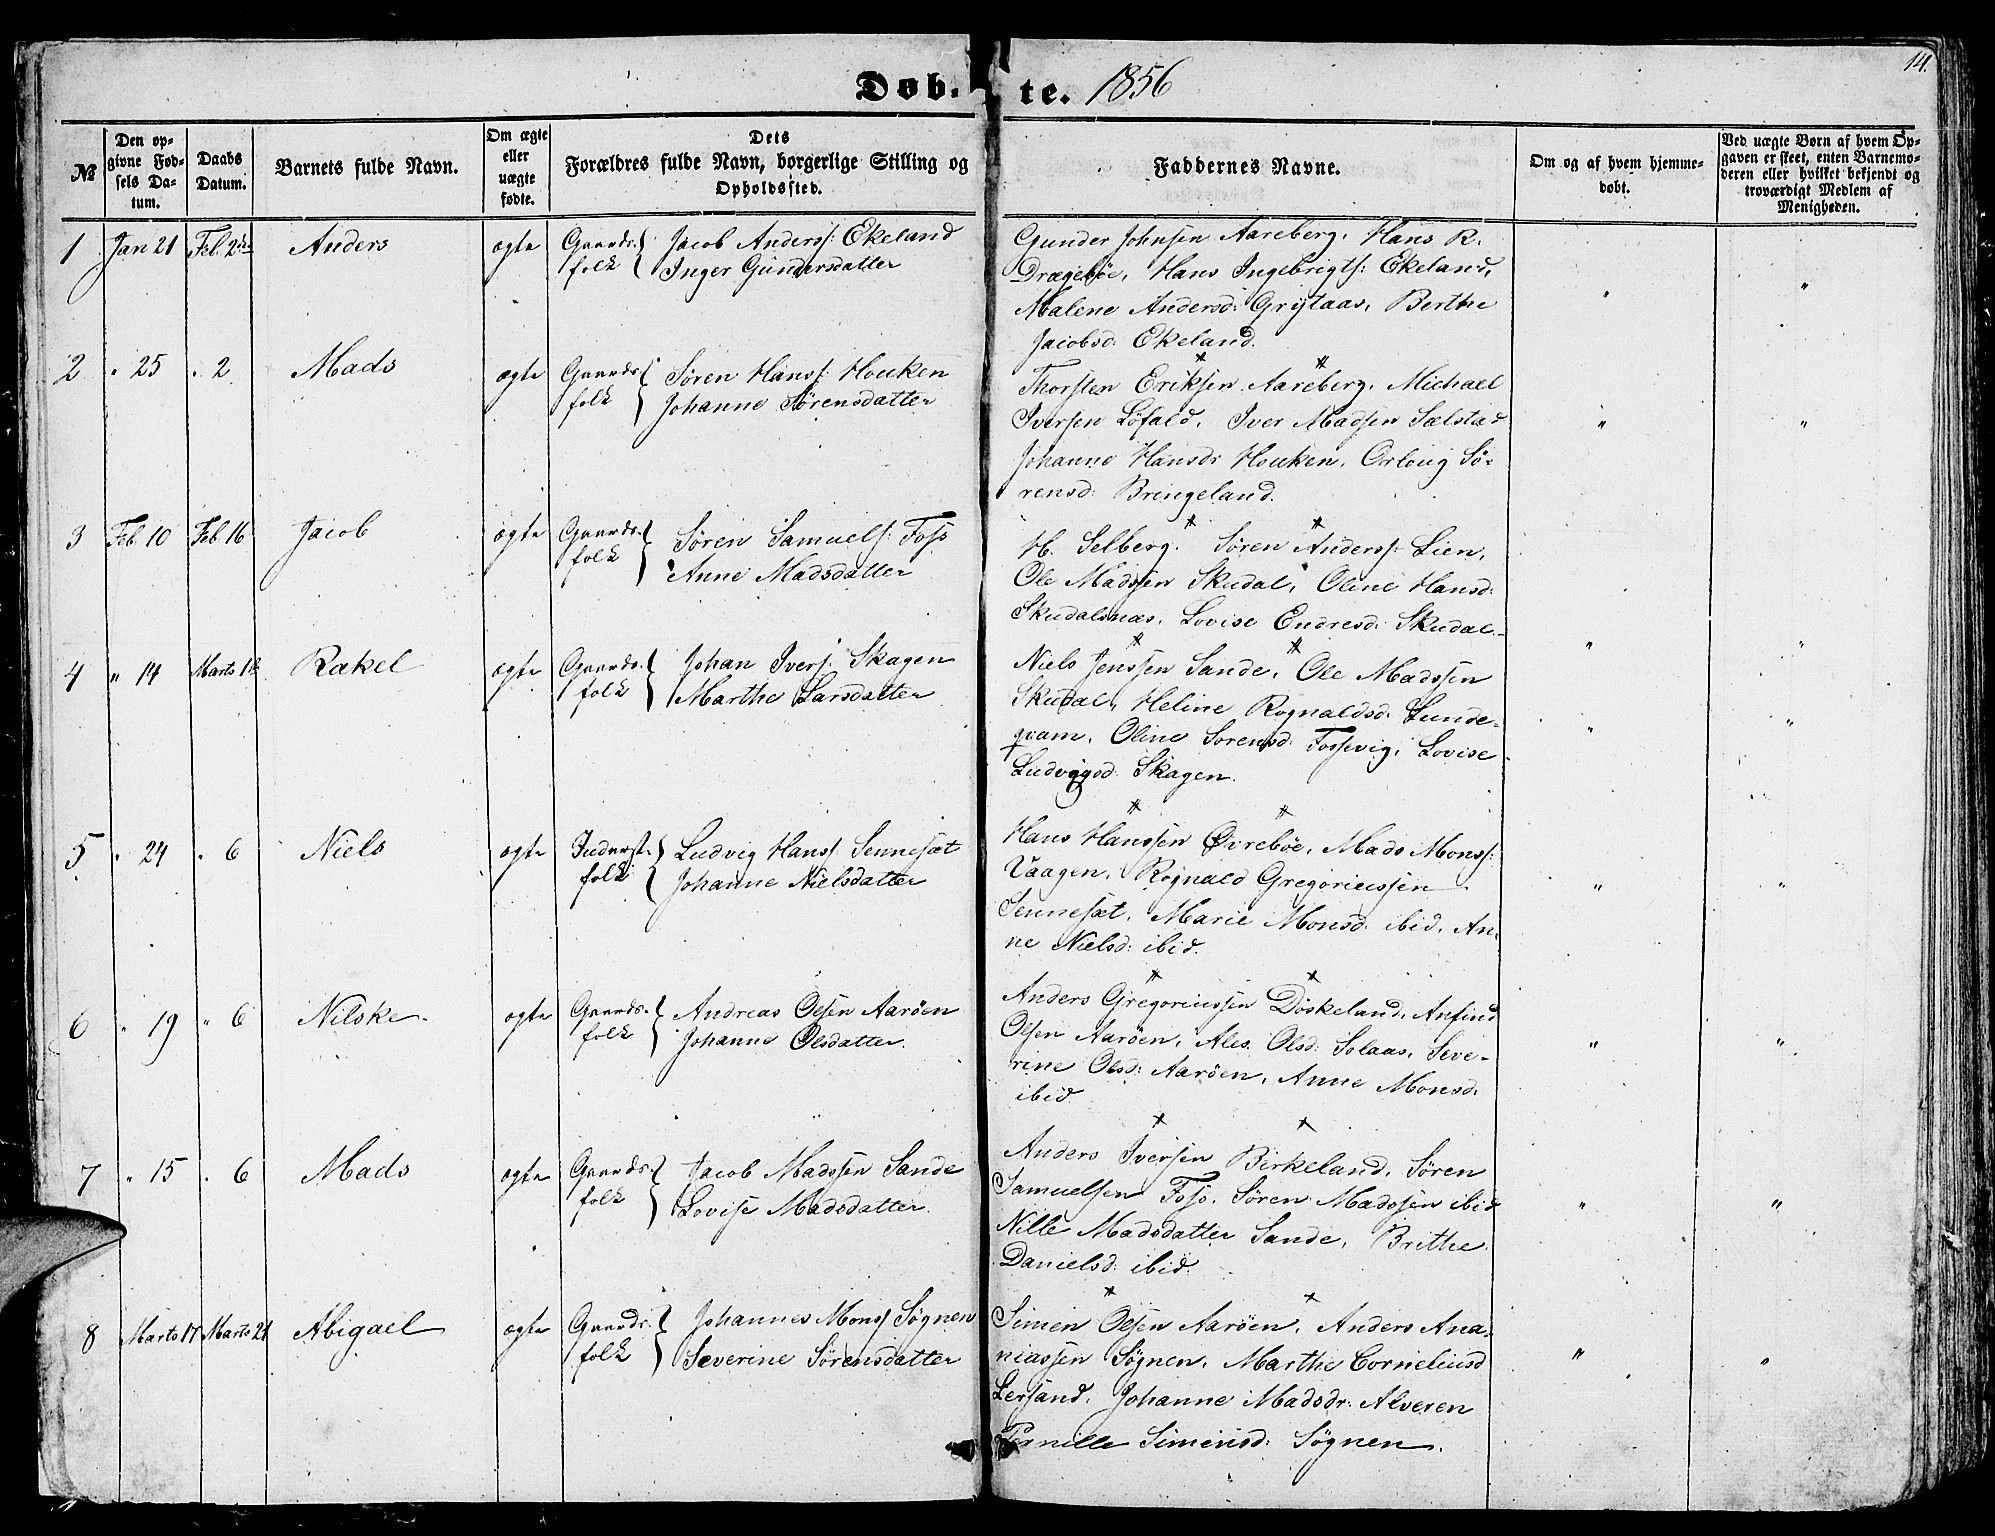 Døb. te. 1856
14.
№
Den op-
givne Fød-
sels Da-
tum.
Daabs
Datum.
Barnets fulde Navn.
Om ægte
eller
uægte
fødte.
Dets
Forældres fulde Navn, borgerlige Stilling og
Opholdssted.
Faddernes Navne.
Om og af hvem hjemme-
døbt.
Ved uægte Børn af hvem Op-
gaven er skeet, enten Barnemo-
deren eller hvilket bekjendt og
troværdigt Medlem af
Menigheden.
1 Jan 21 Feb. 2 Anders ægte Gaards- Jacob Anderss: Ekeland
folk Inger Gundersdatter
Gunder Johnsen Aareberg, Hans R.
Dragebøe, Hans Ingebrigts: Ekeland,
Malene Andersd: Grytaas, Berthe
Jacobsd: Ekeland.
" "
2 " 25 " 2 Mads ægte Gaards- Søren Hanss: Houken
folk Johanne Sørensdatter
Thorsten Eriksen Aareberg, Michael
Iversen Løfald, Iver Madsen Sælstad
Johanne Hansdr Houken, Orloug Sø-
rensd: Bringeland.
" "
3 Feb. 10 Feb. 16 Jacob ægte Gaards- Søren Samuels: Foss
folk Anne Madsdatter
H. Selberg. Søren Anderss: Lien,
Ole Madssen Skudal, Oline Hansd:
Skudalsnæs, Lovise Endresd: Skudal.
" "
4 " 14 Marts Rakel ægte Gaards- Johan Ivers: Skagen
folk Marthe Larsdatter
Niels Jenssen Sande, Ole Madssen
Skudal, Heline Rognaldsd: Lunde-
qvam, Oline Sørensd: Fossevig, Lovise
Ludvigsd: Skagen.
" "
5 " 24 " 6 Niels ægte Inderst- Ludvig Hanss: Sennesæt
folk Johanne Nielsdatter
Hans Hanssen Øvrebøe, Mads Monss:
Vaagen, Rognald Gregoriussen
Sennesæt, Marie Monsd: ibid, An-
ne Nielsd: ibid.
" "
6 " 19 " 6 Nilske ægte Gaards- Andreas Olsen Aarøen
folk Johanne Olsdatter.
Anders Gregoriussen Døskeland, Anfind
Olsen Aarøen, Ales Olsd: Solaas, Seve-
rine Olsd: Aarøen, Anne Monsd:
ibid
" "
7 " 15 " 6 Mads ægte Gaards- Jacob Madssen Sande
folk Lovise Madsdatter.
Anders Iversen Birkeland, Søren
Samuelsen Foss, Søren Madssen ibid
Nille Madsdatter Sande, Brithe
Danielsd: ibid.
" "
8 Marts 17 Marts 21 Abigael ægte Gaards- Johannes Monss: Søgnen
folk Severine Sørensdatter
Simen Olsen Aarøen, Anders Ana-
niassen Søgnen, Marthe Corneliusd
Lersand, Johanne Madsdr: Alveren
Pernille Simensd: Søgnen.
" "